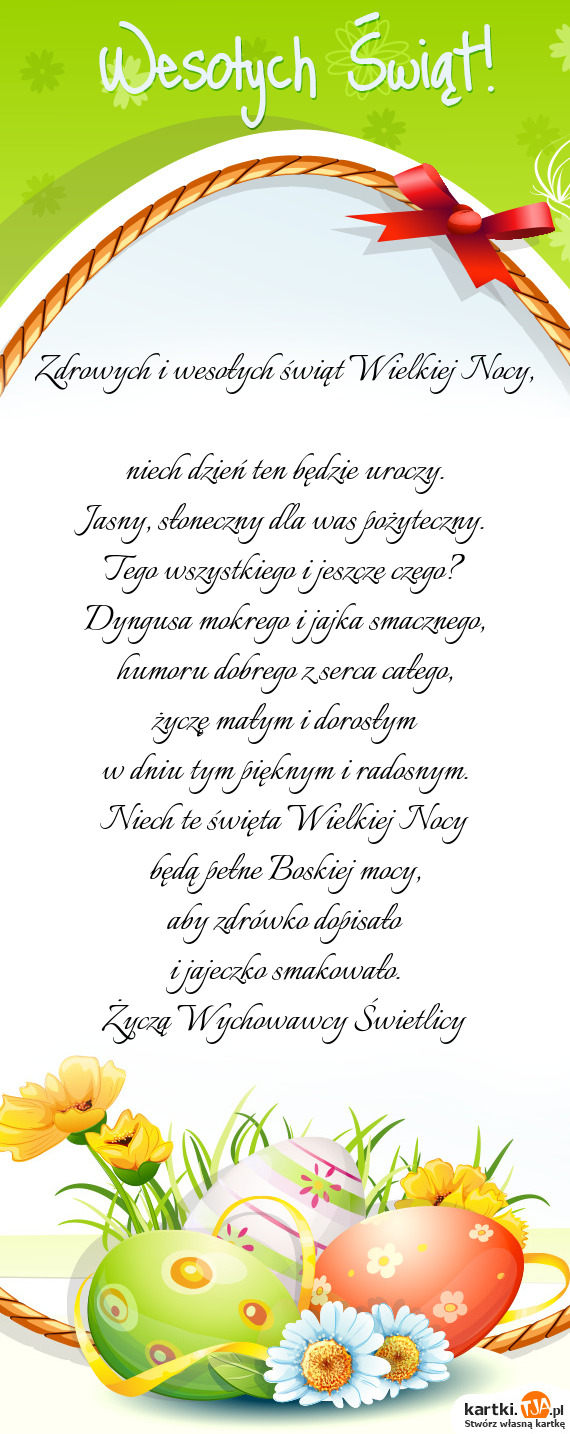 Wesołych Świąt!
Zdrowych i wesołych świąt Wielkiej Nocy,
niech dzień ten będzie uroczy.
Jasny, słoneczny dla was pożyteczny.
Tego wszystkiego i jeszczę czego?
Dyngusa mokrego i jajka smacznego,
humoru dobrego z serca całego,
życzę małym i dorosłym
w dniu tym pięknym i radosnym.
Niech te święta Wielkiej Nocy
będą pełne Boskiej mocy,
aby zdrówko dopisało
i jajeczko smakowało.
Życzą Wychowawcy Świetlicy
kartki.TJA.pl
Stwórz własną kartkę